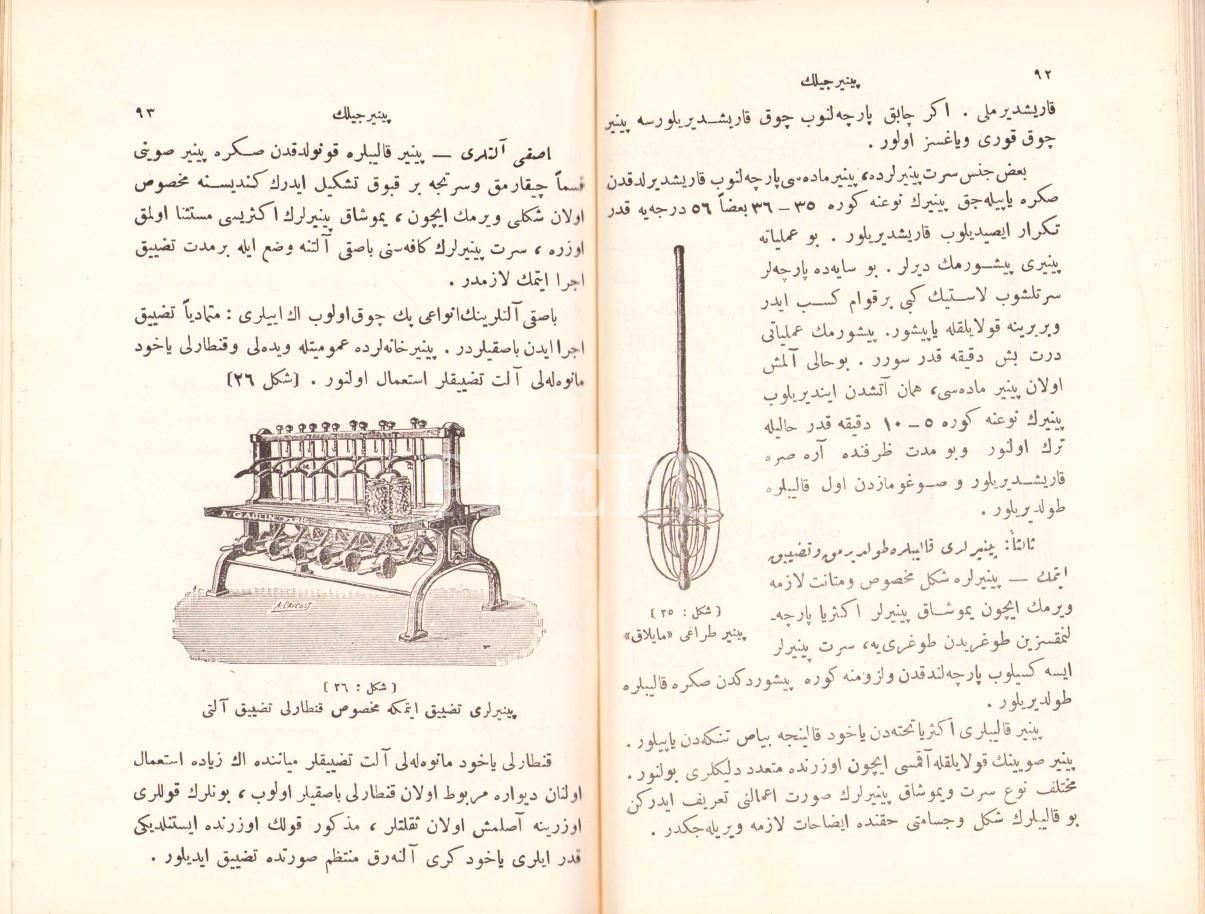 ٩٢
پینیرجیلك
قاریشدیرملی . اكر چابق پارچه‌لنوب چوق قاریشـدیریلورسه پینیر
چوق قوری ویاغسز اولور .
بعض جنس سرت پینیرلرده، پینیر ماده‌سی پارچه‌لنوب قاریشدیرلدقدن
صكره یاپیله‌جق پینیرك نوعنه كوره ٣٥ – ٣٦ بعضاً ٥٦ درجه‌یه قدر
تكرار ایصیدیلوب قاریشدیریلور . بو عملیاته
پینیری پیشـورمك دیرلر . بو سایه‌ده پارچه‌لر
سرتلشوب لاسـتیك كبی برقوام كسـب ایدر
وبربرینه قولایلقله یاپیشور. پیشورمك عملیاتی
درت بش دقیقه قدر سورر . بوحالی آلمش
اولان پینیر ماده‌سی، همان آتشدن ایندیریلوب
پینیرك نوعنه كوره ٥ – ١٠ دقیقه قدر حالیله
ترك اولنور وبو مدت ظرفنده آره صره
قاریشـدیریلور و صـوغومازدن اول قالیبلره
طولدیریلور .
ثالثاً: پینیرلری قالیبلره طولدیرمق و تضییق
ایتمك — پینیرلره شكل مخصوص ومتانت لازمه
ویرمك ایچون یموشـاق پینیرلر اكثریا پارچه‌ـ
لنمقسزین طوغریدن طوغری‌یه، سرت پینیرلر
ایسه كسیلوب پارچه‌لندقدن ولزومنه كوره پیشوردكدن صكره قالیبلره
طولدیریلور .
( شكل : ٢٥ )
پینیر طراغی «مایلاق»
پینیر قالیبلری اكثریا تخته‌دن یاخود قالینجه بیاض تنكه‌دن یاپیلور .
پینیر صویینك قولایلقله آقمسی ایچون اوزرنده متعدد دلیكلری بولنور .
مختلف نوع سرت ویموشاق پینیرلرك صورت اعمالنی تعریف ایدركن
بو قالیبلرك شكل وجسامتی حقنده ایضاحات لازمه ویریله‌جكدر .
پینیرجیلك
٩٣
اصقی آلتلری — پینیر قالیبلره قونولدقدن صـكره پینیر صوینی
قسماً چیقارمق وسرتجه بر قبوق تشكیل ایدرك كندیسـنه مخصوص
اولان شكلی ویرمك ایچون ، یموشاق پینیرلرك اكثریسی مستثنا اولمق
اوزره ، سرت پینیرلرك كافه‌سنی باصقی آلتنه وضع ایله برمدت تضییق
اجرا ایتمك لازمدر .
باصقی آلتلرینك انواعی پك چوق اولوب اك اییلری : متمادیاً تضییق
اجرا ایدن باصقیلردر . پینیرخانه‌لرده عمومیتله ویده‌لی وقنطارلی یاخود
مانوه‌له‌لی آلت تضییقلر استعمال اولنور . (شكل ٢٦)
A. GAULIN PARIS
PHEBUS
( شكل : ٢٦ )
پینیرلری تضییق ایتمكه مخصوص قنطارلی تضییق آلتی
قنطارلی یاخود مانوه‌له‌لی آلت تضییقلر میاننده اك زیاده استعمال
اولنان دیواره مربوط اولان قنطارلی باصقیلر اولوب ، بونلرك قوللری
اوزرینه آصلمش اولان ثقلتلر ، مذكور قولك اوزرنده ایستنلدیكی
قدر ایلری یاخود كری آلنه‌رق منتظم صورتده تضییق ایدیلور .